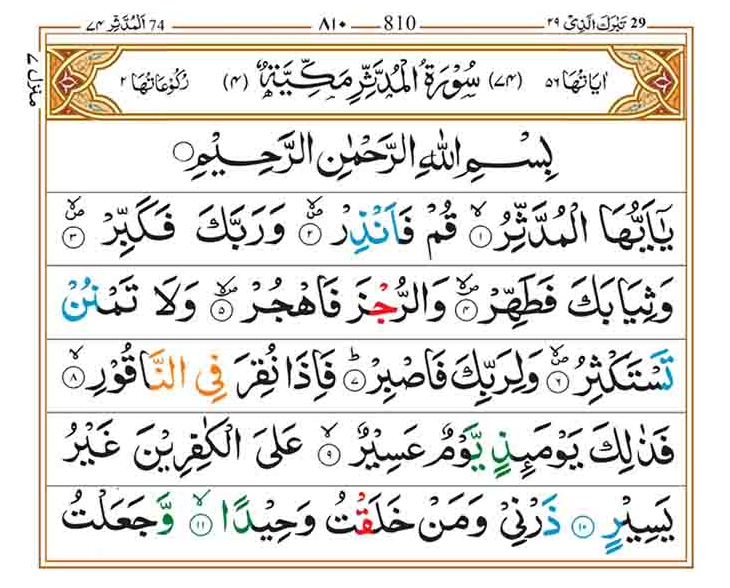 29 تَبٰرَكَ الَّذِىْ ۲۹ 810 ۸۱۰ 74 اَلْمُدَّثِّر ۷۴
منزل ۷
اٰيَاتُهَا ۵۶ (۷۴) سُوْرَةُ الْمُدَّثِّرِ مَكِّيَّةٌ (۴) رُكُوْعَاتُهَا ۲
بِسْمِ اللّٰهِ الرَّحْمٰنِ الرَّحِيْمِ ۝
يٰۤاَيُّهَا الْمُدَّثِّرُ ۙ‏ ۱ قُمْ فَاَنْذِرْ ۙ ۲ وَرَبَّكَ فَكَبِّرْ ۙ ۳
وَثِيَابَكَ فَطَهِّرْ ۙ ۴ وَالرُّجْزَ فَاهْجُرْ ۙ ۵ وَلَا تَمْنُنْ
تَسْتَكْثِرُ ۙ ۶ وَلِرَبِّكَ فَاصْبِرْ ؕ ۷ فَاِذَا نُقِرَ فِى النَّاقُوْرِ ۙ ۸
فَذٰلِكَ يَوْمَٮِٕذٍ يَّوْمٌ عَسِيْرٌ ۙ ۹ عَلَى الْكٰفِرِيْنَ غَيْرُ
يَسِيْرٍ ۱۰ ذَرْنِىْ وَمَنْ خَلَقْتُ وَحِيْدًا ۙ ۱۱ وَّجَعَلْتُ